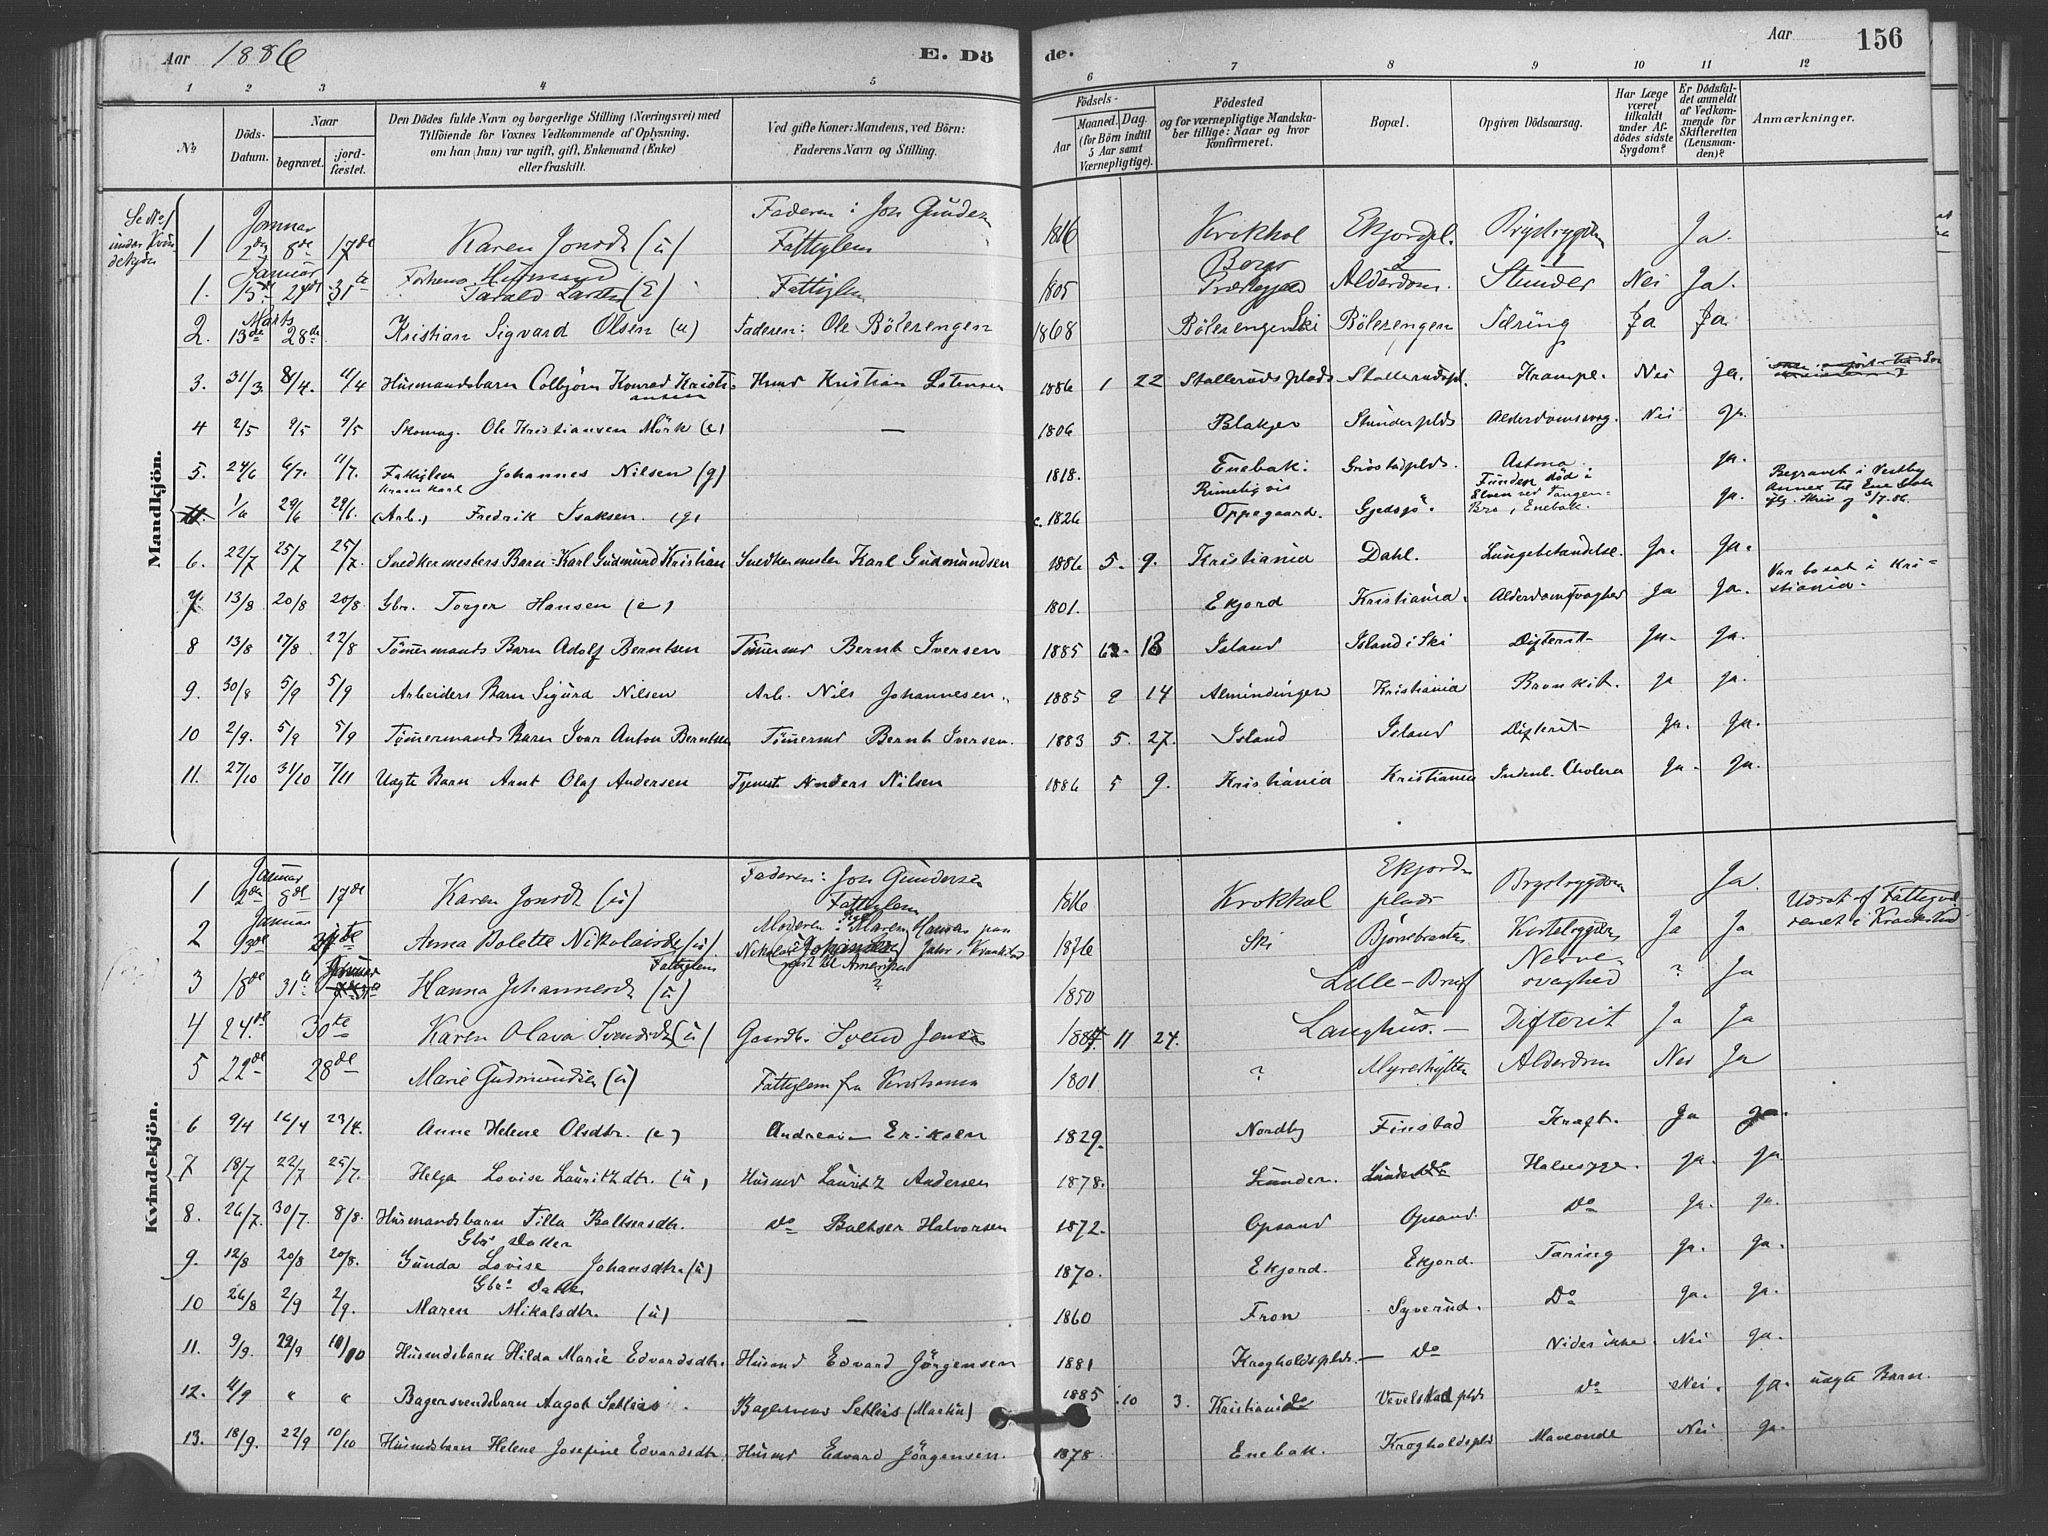 Aar 1886
E. Dö
de.
Aar
156
1 2 3 4 5 6 7 8 9 10 11 12
No
Döds-Datum.
Naar
begravet.
jord-fæstet.
Den Dödes fulde Navn og borgerlige Stilling (Næringsvei) med
Tilföiende for Voxnes Vedkommende af Oplysning.
om han (hun) var ugift, gift, Enkemand (Enke)
eller fraskilt.
Ved gifte Koner: Mandens, ved Börn:
Faderens Navn og Stilling.
Födsels-
Aar
Maaned. Dag.
(for Börn indtil
5 Aar samt
Værnepligtige).
Födested
og for værnepligtige Mandska-
ber tillige: Naar og hvor
konfirmeret.
Bopæl.
Opgiven Dödsaarsag.
Har Læge
været
tilkaldt
under Af-
dödes sidste
Sygdom?
Er Dödsfal-
det anmeldt
af Vedkom-
mende for
Skifteretten
(Lensman-
den)?
Anmærkninger.
Mandkjön.
Se No 1 under Kvindekjön
1 Januar 2den 8de 17de Karen Jonsdt (u) Faderen: Jon Gunders Fattiglem 1816 Krokhol Ekjordpl. Brystsygdom Ja.
1. Januar 15de 24de 31te Husmand Tarald Larsen (E) Fattiglem 1805 Alderdom Stunder Nei Ja.
2. Marts 13de 28de Kristian Sigvard Olsen (u) Faderen: Ole Bölerengen 1868 Bölerengen Ski Bölerengen Tæring Ja Ja.
3. 31/3 8/4. 11/4 Husmandsbarn Colbjörn Konrad Kristiansen Husmd Kristian 1886 1 22 Stallerudsplads Stallerudspl. Krampe. Nei Ja.
4 2/5 9/5 9/5 Skomag. Ole Kristiansen Mörk (e) — 1806 Blakjer Stunderplds Alderdomssvag. Nei Ja.
5. 24/6 6/7. 11/7. Fattiglem Johannes Nilsen (g) 1818. Enebak. Griestadplds. Astma. Ja.
1/6 29/6 29/6. Kramkarl (Arb.) Fredrik Isaksen. (g) c. 1826 Rimeligvis Oppegaard. Gjedsjö. Funden död i Elven ved Tangen-Bro, Enebak. Ja. Begravet i Vestby Annex til
6. 22/7 25/7 25/7. Snedkermesters Barn Karl Gudmund Kristian Snedkermester Karl Gudmundsen 1886 5. 9. Kristiania Dahl. Lungebetændelse. Ja. Ja.
7. 13/8 20/8 20/8. Gbr. Torger Hansen (e) 1801. Ekjord Kristiania. Alderdomssvaghed Ja Ja. Var bosat i Kristiania.
8 13/8 17/8 22/8 Tömmermands Barn Adolf Berntsen Tömmermd Bernt Iversen 1885 18 Island Island i Ski Difterit Ja. Ja.
9. 30/8 5/9 5/9 Arbeiders Barn Sigurd Nilsen Arb. Nils Johannesen. 1885 2 14 Almindingen Kristiania Bronkit. Ja Ja.
10 2/9. 5/9 5/9 Tömmermands Barn Ivar Anton Berntsen Tömmermd Bernt Iversen. 1883 5. 27. Island Island Difterit Ja. Ja.
11. 27/10 31/10 7/11 Uægte Barn Arnt Olaf Andersen Tjenest. Anders Nilsen 1886 5 9. Kristiania Kristiania Indenl. Cholera Ja. Ja.
Kvindekjön.
1 Januar 2den 8de 17de Karen Jonsdt (u) Faderen: Jon Gundersen Fattiglem 1816 Krokhol Ekjordsplads Brystsygdom Ja.
2 Januar 13de Anna Bolette Nikolaisdt (u). Moderen: Maren Hansen paa Nikolai Johansen reist til Amerika 1876 Ski Kjertelsygdom Ja Ja Udsat af Fattigvæsenet i Kraakstad
3 18de 31te Januar Fattiglem Hanna Johannesdt (u) ? 1850 Lille-Brug Nervesvaghed ? Ja
4 24de 30te Karen Olava Svendsdt (u) Gaardb. Svend Jensen 1884 11 24. Langhus. — Difterit Ja Ja
5 22de 28de Marie Gudmundsen (u) Fattiglem fra Kristiania 1801 ? Myrehytten Alderdom Nei Ja
6 9/4 16/4 23/4. Anne Helene Olsdtr. (e) Andreas Eriksen 1829. Nordby Finstad Kræft. Ja Ja.
7 18/7 22/7 25/7. Helga Lovise Lauritzdtr. (u) Husmd Lauritz Andersen 1878. Lunder. Lunder Halssyge. Ja. Ja.
8. 26/7. 30/7. 8/8. Husmandsbarn Tilla Baltsersdtr. Do Baltser Halvorsen 1872. Opsand Opsand. Do Ja. Ja.
9. 12/8 20/8 20/8. Gbrs Datter Gunda Lovise Johansdtr. (u) 1870. Ekjord. Ekjord. Tæring Ja. Ja.
10 26/8 2/9 2/9. Gbrs Datter Maren Mikalsdtr. (u) — 1860 Fron Syverud. Do Ja. Ja.
11. 9/9. 22/9 10/10 Husmdsbarn Hilda Marie Edvardsdtr. Husmd Edvard Jörgensen 1881 Krogholdsplds. — Do Vides ikke. Nei Ja.
12. 11/9 " " Bagersvendsbarn Aagot Bagersvend (Martin) 1885 10 3. Kristiania Vevelstadplds Do Nei. Ja. uægte Barn.
13. 18/9. 22/9 10/10 Husmdsbarn Helene Josefine Edvardsdtr. Husmd Edvard Jörgensen. 1878. Enebak. Krogholdsplds Maveonde Nei Ja.